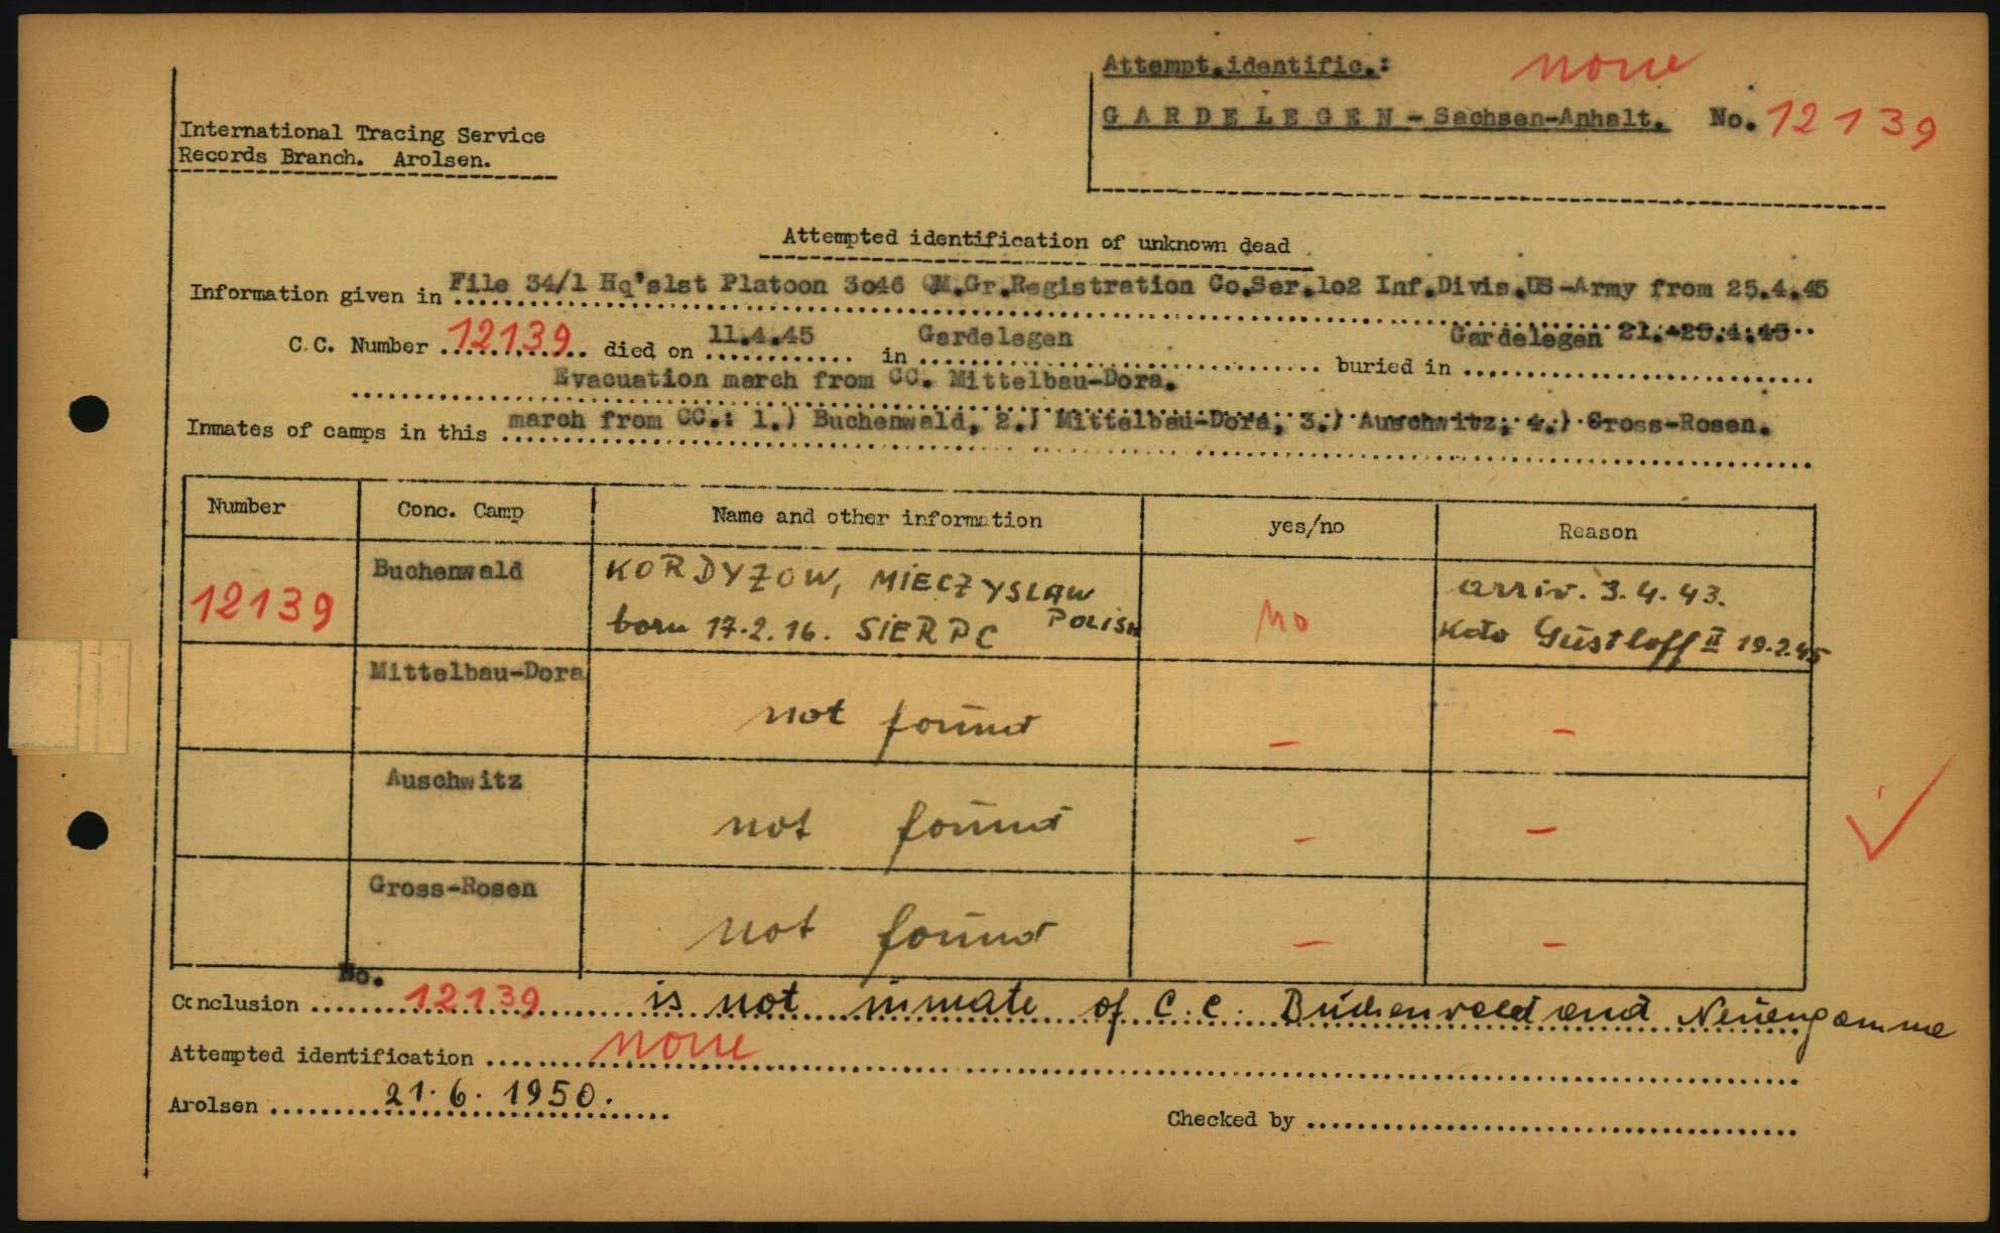 Attempt.identific.: none
GARDELEGEN - Sachsen-Anhalt. No. 12139
International Tracing Service
Records Branch. Arolsen.
Attempted identification of unknown dead
Information given in File 34/1 Hq's1st Platoon 3o46 QM.Gr.Registration Co.Ser.1o2 Inf.Divis.US-Army from 25.4.45
C.C. Number 12139 died on 11.4.45 in Gardelegen buried in Gardelegen 21.-25.4.45
Evacuation march from CC. Mittelbau-Dora.
Inmates of camps in this march from CC.: 1.) Buchenwald, 2.) Mittelbau-Dora, 3.) Auschwitz, 4.) Gross-Rosen.
Number Conc. Camp Name and other information yes/no Reason
12139 Buchenwald KORDYZOW, MIECZYSLAW no arriv. 3.4.43.
born 17.2.16. SIERPC POLISH Kdo Gustloff II 19.2.45
Mittelbau-Dora not found - -
Auschwitz not found - -
Gross-Rosen not found - -
Conclusion No. 12139 is not inmate of C.C. Buchenwald and Neuengamme
Attempted identification none
Arolsen 21.6.1950.
Checked by